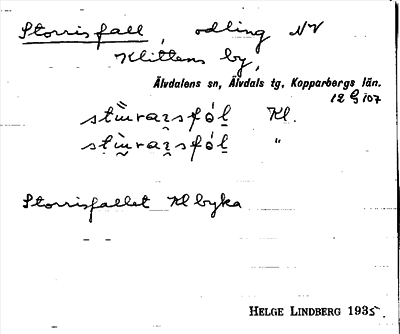 Storrisfall, odling NV
Klittens by,
Älvdalens sn, Älvdals tg, Kopparbergs län.
12 G 107
stùraṣsfól Kl.
stùraṣsfól "
Storrisfallet Kl byka
HELGE LINDBERG 1935.